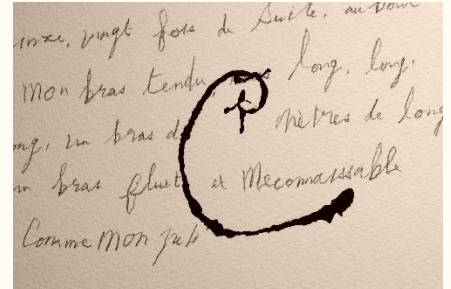 vingt fois de suite, au bout
mon bras tendu long, long,
un bras d mètres de long
bras fluet et Meconnaissable
Comme mon